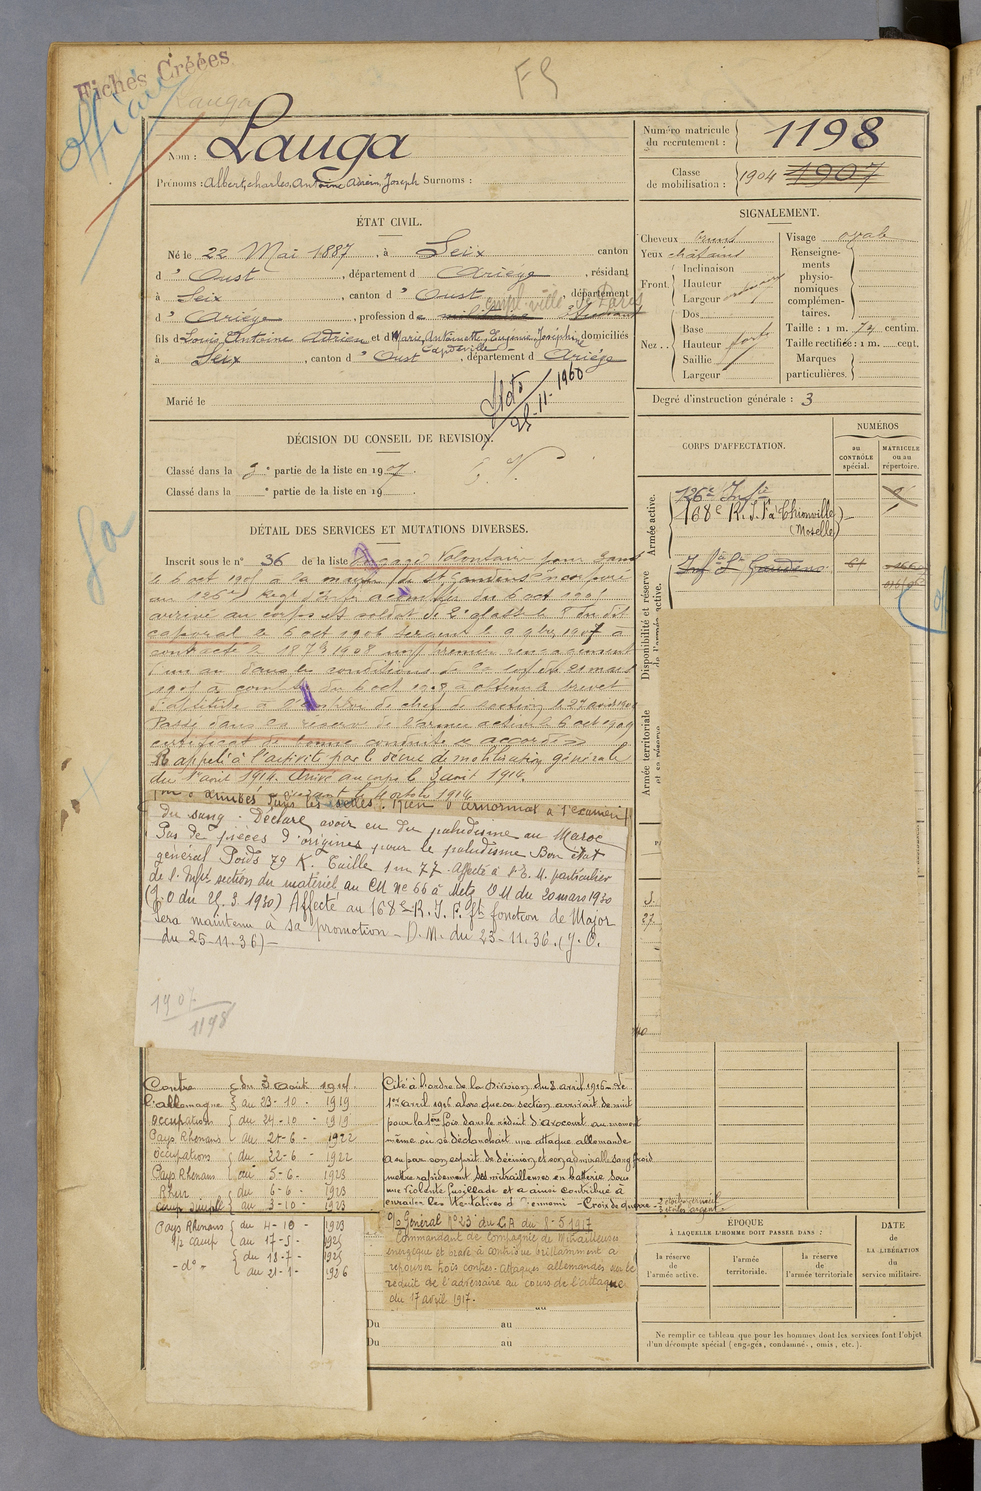 Fiches Créées
officier
Lauga
FS
Nom : Lauga
Prénoms : Albert, Charles, Antoine, Adrien, Joseph Surnoms :
Numéro matricule du recrutement : 1198
Classe de mobilisation : 1904 1907
ÉTAT CIVIL.
Né le 22 Mai 1887, à Seix canton
d' Oust, département d Ariège, résidant
à Seix, canton d' Oust, département
empl. ville de Paris
d' Ariège, profession de
fils d Louis Antoine Adrien et d Marie Antoinette Eugénie Joséphine domiciliés
Capdeville
à Seix, canton d' Oust, département d' Ariège
Marié le
28-11-1960
SIGNALEMENT.
Cheveux bruns
Yeux châtains
Front.
Inclinaison
Hauteur
Largeur
Nez..
Dos
Base
Hauteur forte
Saillie
Largeur
Visage ovale
Renseignements physionomiques complémentaires.
Taille : 1 m. 74 centim.
Taille rectifiée : 1 m. cent.
Marques particulières.
Degré d'instruction générale : 3
DÉCISION DU CONSEIL DE REVISION.
Classé dans la 3e partie de la liste en 1907.
Classé dans la e partie de la liste en 19 .
CORPS D'AFFECTATION.
NUMÉROS
au CONTRÔLE spécial.
MATRICULE ou au répertoire.
Armée active.
126e Infie
168e R.I.Fse Thionville
(Moselle)
Infie St Gaudens 61
Disponibilité et réserve de l'armée active.
Armée territoriale et sa réserve
DÉTAIL DES SERVICES ET MUTATIONS DIVERSES.
Inscrit sous le n° 36 de la liste Engagé Volontaire pour 3 ans
le 6 oct 1905 à la mairie de St Gaudens incorporé
au 126e Regt d'Infie à compter du 6 oct 1905
arrivé au corps et soldat de 2e classe le 8 dudit
caporal le 6 oct 1906 sergent le 9 9bre 1907 a
contracté le 1908 un premier rengagement
d'un an dans les conditions de la loi du 21 mars
1905 à compter du 6 oct 1908 a obtenu le brevet
d'aptitude à l'emploi de chef de section le 27 août 1908
Passé dans la réserve de l'armée active le 6 oct 1909
certificat de bonne conduite accordé
Rappelé à l'activité par le décret de mobilisation générale
du 1er août 1914. Arrivé au corps le 3 août 1914.
le 4 octobre 1914
amibes dans les selles. Rien d'anormal à l'examen
du sang. Déclare avoir eu du paludisme au Maroc
Pas de pièces d'origines pour le paludisme Bon état
général Poids 79 K. Taille 1m 77. Affecté à l'E. M. particulier
de l'Infie section du matériel au CM ne 66 à Metz OM du 20 mars 1930
(J.O du 25.3.1930) Affecté au 168e R.I.F. ft fonction de Major
Sera maintenu à sa promotion - D.M. du 23-11-36. (J.O.
du 25-11-36) -
1907
1198
Contre { du 3 août 1914
l'allemagne { au 23-10- 1919
Occupation { du 24-10 - 1919
Pays Rhénans { au 21-6- 1922
Occupations { du 22-6- 1922
Pays Rhénans { au 5-6- 1923
Rhur { du 6-6- 1923
Camp simple { au 3-10- 1923
Pays Rhénans { du 4-10- 1923
1/2 camp { au 17-5- 1925
-do- { du 18-7- 1925
{ au 21-1- 1926
Cité à l'ordre de la Division du 8 avril 1916 - Le
1er avril 1916 alors que sa section arrivait de nuit
pour la 1ère fois dans le réduit d'avocourt au moment
même où se déclanchait une attaque allemande
a su par son esprit de décision et son admirable sang froid
mettre rapidement ses mitrailleuses en batterie sous
une violente fusillade et a ainsi contribué à
enrayer les tentatives d'ennemi - Croix de guerre -
O/o Général N° 23 du CA du 8-5-1917
Commandant de Compagnie de Mitrailleuses
énergique et brave a contribué brillamment à
repousser trois contre-attaques allemandes sur le
réduit de l'adversaire au cours de l'attaque
du 17 avril 1917.
au
Du au
Du au
ÉPOQUE
À LAQUELLE L'HOMME DOIT PASSER DANS :
la réserve de l'armée active.
l'armée territoriale.
la réserve de l'armée territoriale
DATE de LA LIBÉRATION du service militaire.
Ne remplir ce tableau que pour les hommes dont les services font l'objet
d'un décompte spécial (engagés, condamnés, omis, etc.).